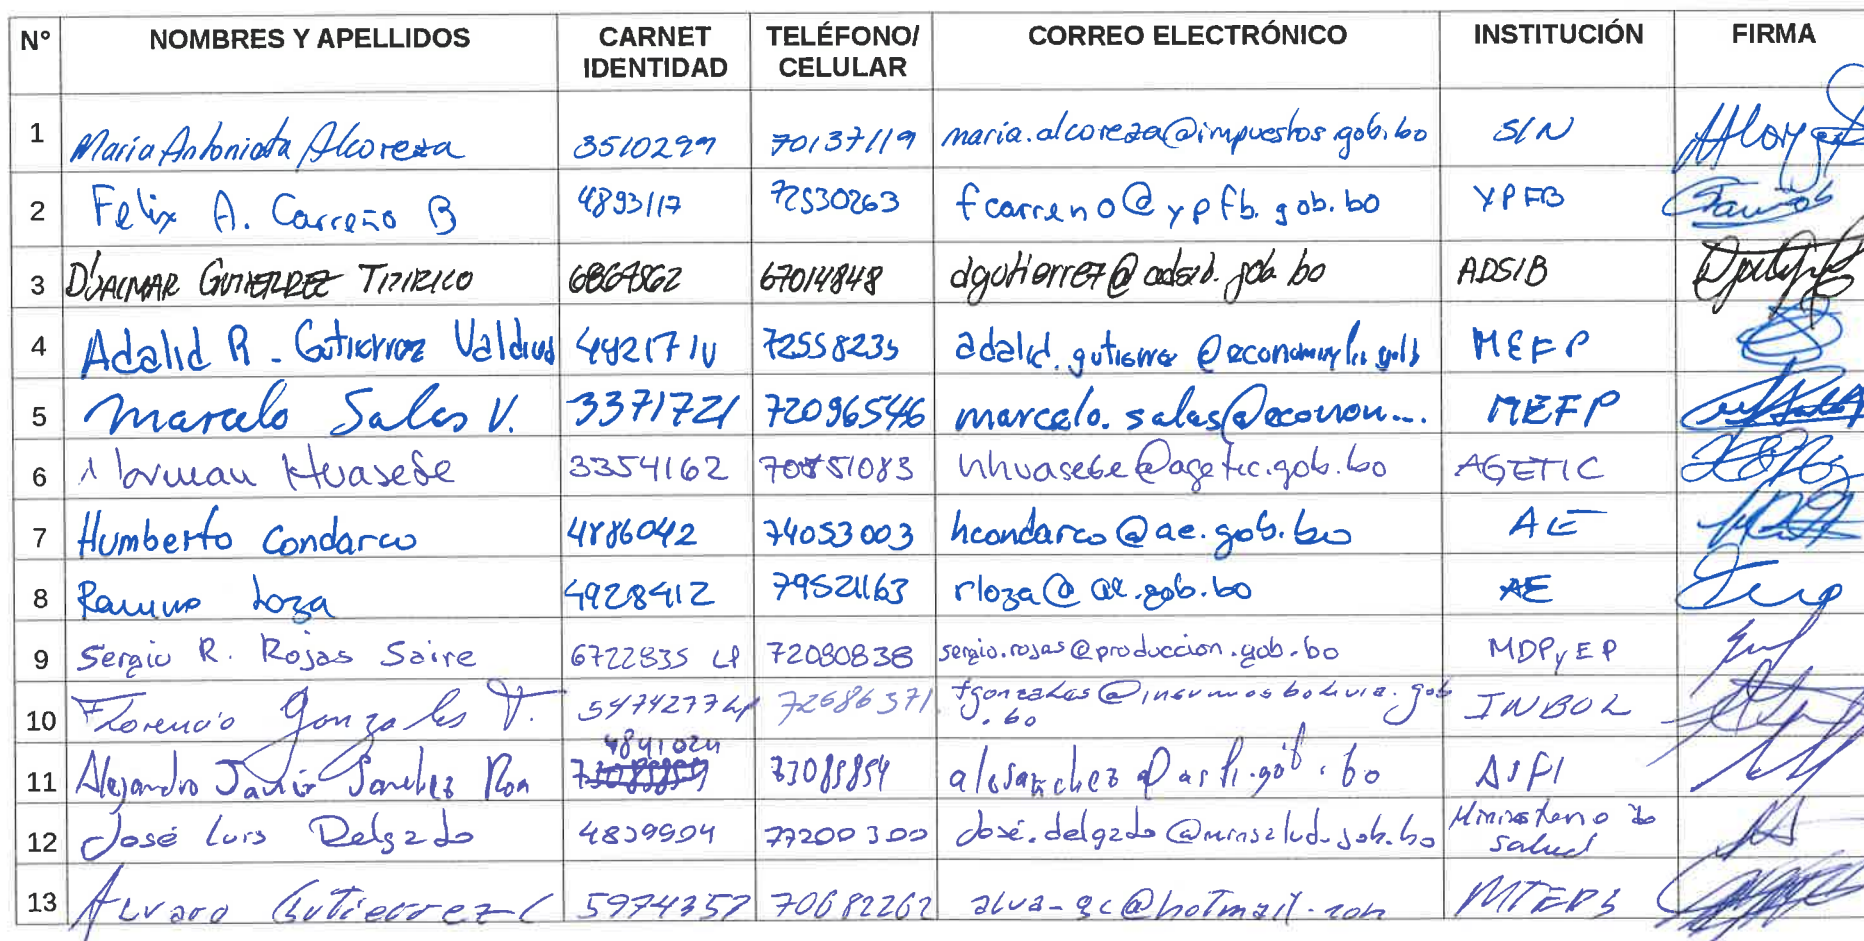 N° NOMBRES Y APELLIDOS CARNET IDENTIDAD TELÉFONO/ CELULAR CORREO ELECTRÓNICO INSTITUCIÓN FIRMA
1 Maria Antonieta Alcoreza 3510299 70137119 maria.alcoreza@impuestos.gob.bo SIN
2 Felix A. Carreño B 4893117 72530263 fcarreno@ypfb.gob.bo YPFB
3 GUTIERREZ TITIRICO 67014848 dgutierrez@adsib.gob.bo ADSIB
4 Adalid R. Gutierrez 72558235 MEFP
5 Marcelo Salas V. 3371721 72096546 marcelo.salas@econom... MEFP
6 Norman Huasebe 3354162 nhuasebe@agetic.gob.bo AGETIC
7 Humberto Condarco 4886042 74053003 hcondarco@ae.gob.bo AE
8 Ramiro Loza 4928412 79521163 rloza@ae.gob.bo AE
9 Sergio R. Rojas Saire 6722835 LP 72080838 sergio.rojas@produccion.gob.bo MDPyEP
10 Florencio Gonzales V. 5474277 LP 72686371 fgonzales@insumosbolivia.gob
.bo INBOL
4841024
11 Alejandro Javier Sanchez Roa 73085859 alesanchez@asfi.gob.bo ASFI
12 José Luis Delgado 4839904 77200300 José.delgado@minsalud.gob.bo Ministerio de
Salud
13 Alvaro Gutierrez C 70682262 alva-gc@hotmail.com MTEPS